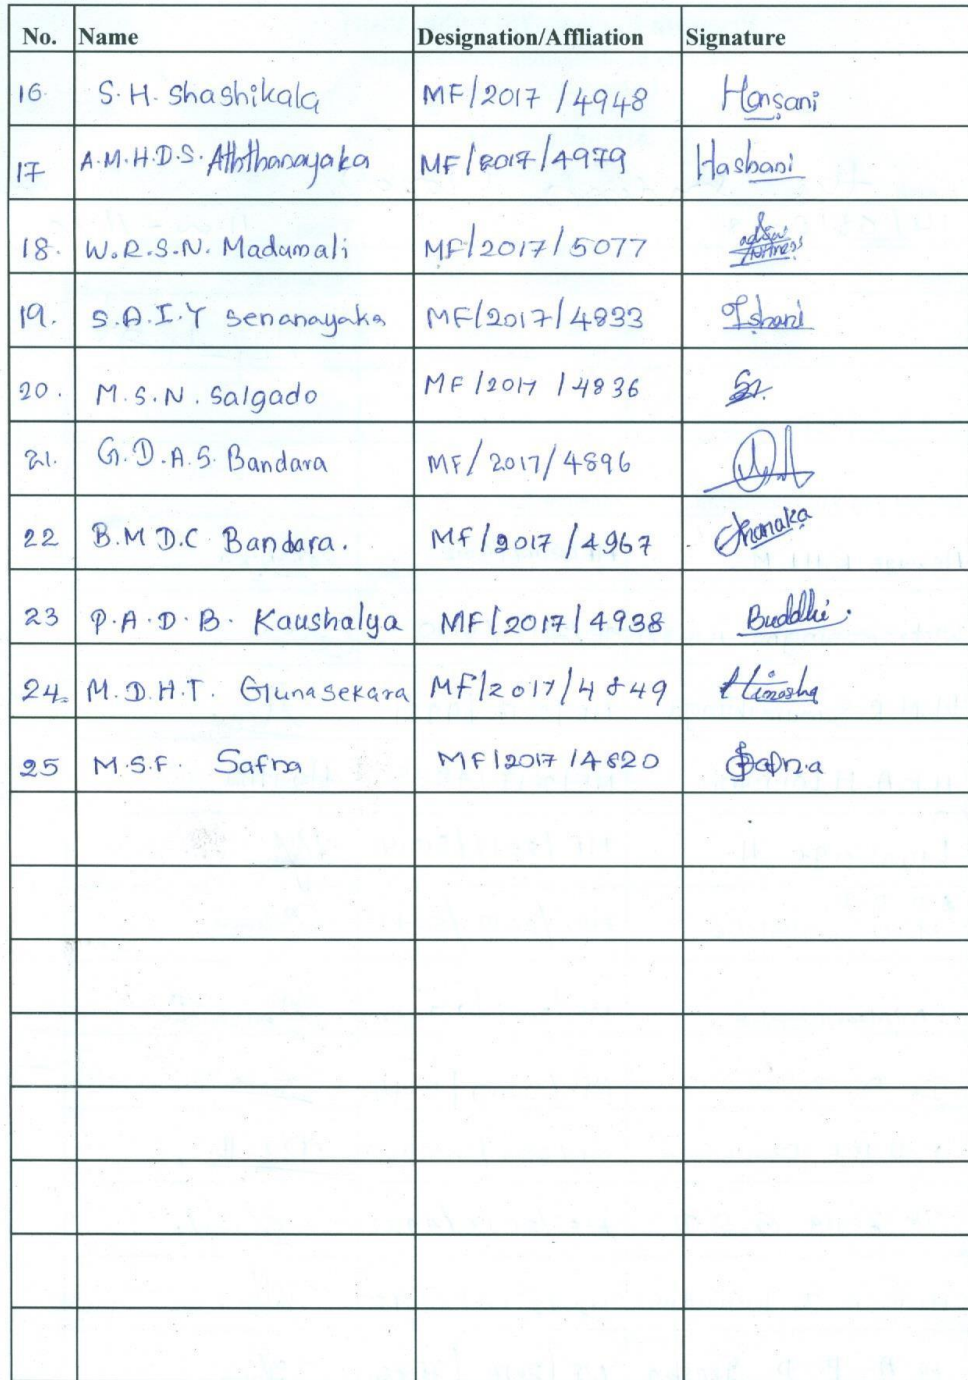 No. Name Designation/Affliation Signature
16 S.H. Shashikala MF/2017/4948 Hansani
17 A.M.H.D.S. Aththanayaka MF/2017/4979 Hashani
18. W.R.S.N. Madumali MF/2017/5077
19. S.A.I.Y Senanayaka MF/2017/4833 Ishani
20. M.S.N. Salgado MF/2017/4836
21. G.D.A.S. Bandara MF/2017/4896
22 B.M D.C Bandara. MF/2017/4967 Chanaka
23 P.A.D.B. Kaushalya MF/2017/4938 Buddhi.
24. M.D.H.T. Gunasekara MF/2017/4849 Hinosha
25 M.S.F. Safna MF/2017/4820 Safna